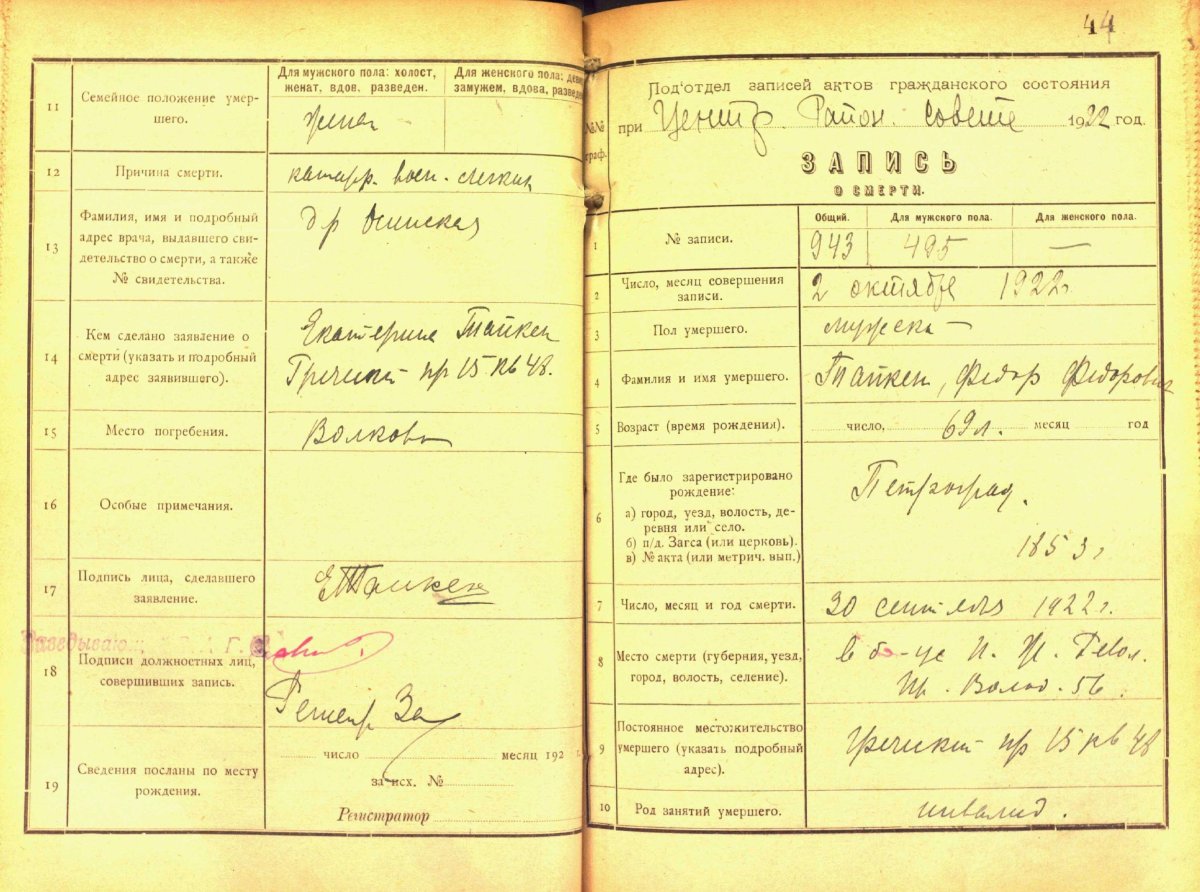 44
11
Семейное положение умер-
шего.
Для мужского пола: холост,
женат, вдов, разведен.
Для женского пола: деви
замужем, вдова, разведе
женат
12
Причина смерти.
катарр. восп. легких
13
Фамилия, имя и подробный
адрес врача, выдавшего сви-
детельство о смерти, а также
№ свидетельства.
др
14
Кем сделано заявление о
смерти (указать и подробный
адрес заявившего).
Екатерина Тайкен
Греческий пр 15 кв 48.
15
Место погребения.
Волково
16
Особые примечания.
17
Подпись лица, сделавшего
заявление.
ЕТайкен
Заведывающ
18
Подписи должностных лиц,
совершивших запись.
19
Сведения посланы по месту
рождения.
число месяц 192 г.
за исх. №
Регистратор
Под'отдел записей актов гражданского состояния
при Центр. Район. Совете 1922 год.
ЗАПИСЬ
О СМЕРТИ.
№№
граф.
Общий. Для мужского пола. Для женского пола.
1
№ записи.
943 495 —
2
Число, месяц совершения
записи.
2 октября 1922 г.
3
Пол умершего.
мужск—
4
Фамилия и имя умершего.
Тайкен, Федор Федорович
5
Возраст (время рождения).
число, 69 л. месяц год
6
Где было зарегистрировано
рождение:
а) город, уезд, волость, де-
ревня или село.
б) п/д. Загса (или церковь).
в) № акта (или метрич. вып.)
Петроград.
1853 г
7
Число, месяц и год смерти.
30 сентября 1922 г.
8
Место смерти (губерния, уезд,
город, волость, селение).
в б-це
Пр. Волод. 56.
9
Постоянное местожительство
умершего (указать подробный
адрес).
Греческий пр 15 кв 48
10
Род занятий умершего.
инвалид.